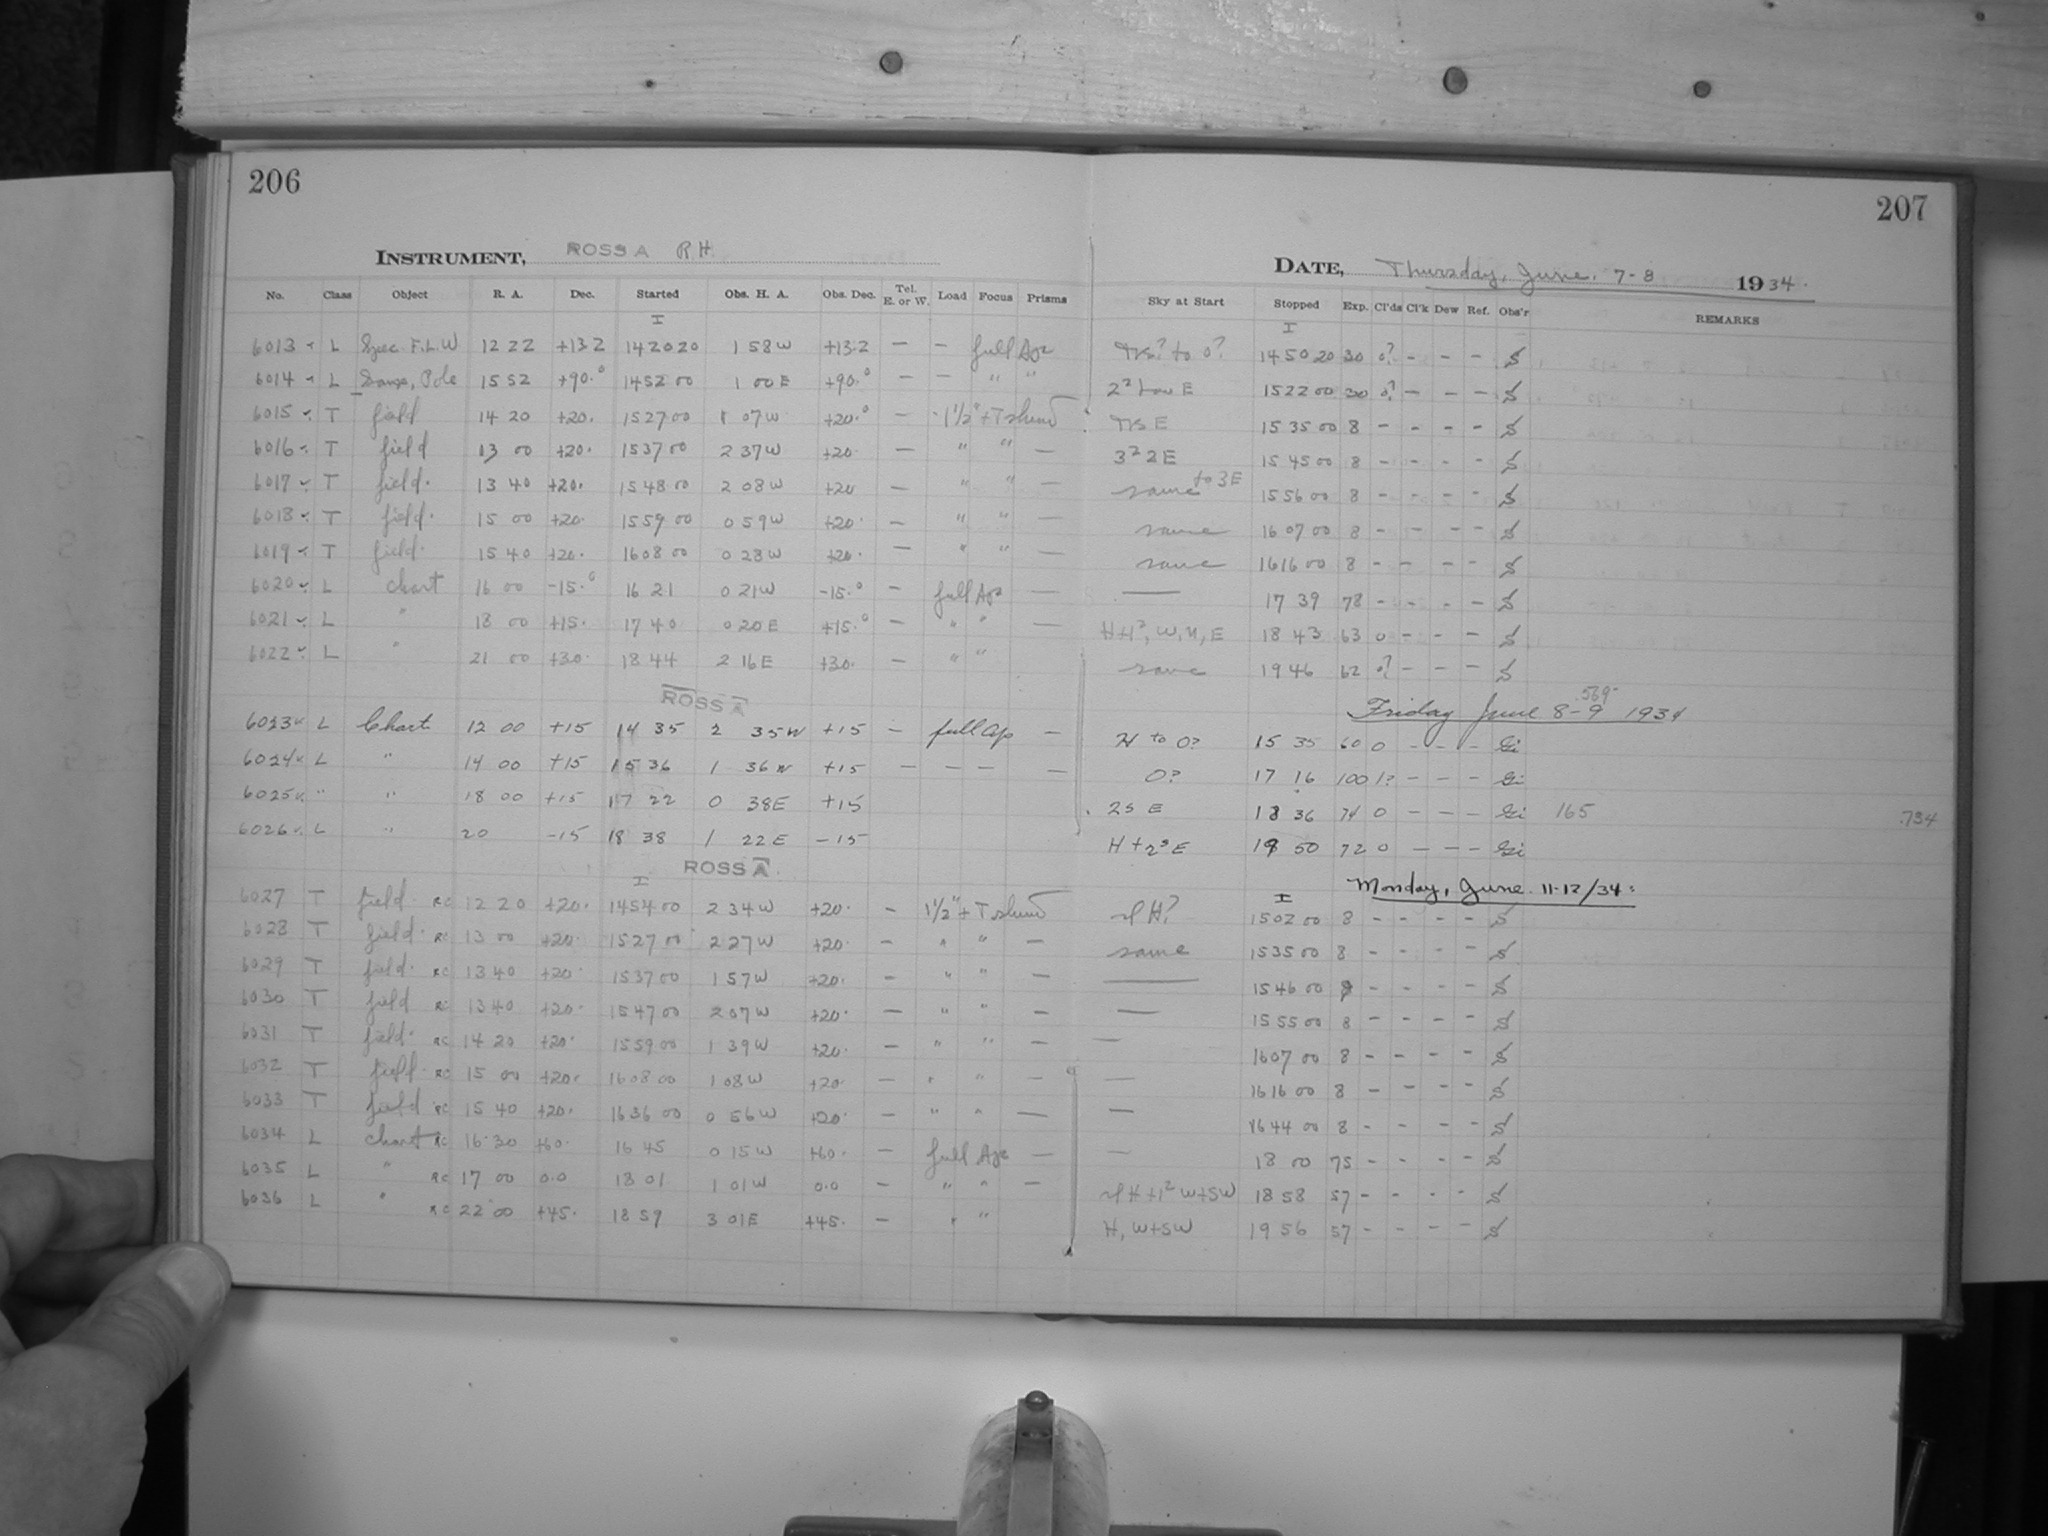 206
INSTRUMENT, ROSS A RH
No. Class Object R. A. Dec. Started Obs. H. A. Obs. Dec. Tel. E. or W. Load Focus Prisms
6013 L Spec. F.L.W 12 22 +13.2 14 20 20 1 58 W +13.2 — — full Ape
6014 L Exp., Pole 15 52 +90.° 14 52 00 1 00 E +90.° — — " "
6015 T field 14 20 +20. 15 27 00 1 07 W +20.° — 1½" + T shund
6016 T field 13 00 +20. 15 37 00 2 37 W +20. — " " —
6017 T field. 13 40 +20. 15 48 00 2 08 W +20 — " " —
6018 T field. 15 00 +20. 15 59 00 0 59 W +20. — " " —
6019 T field. 15 40 +20. 16 08 00 0 28 W +20. — " " —
6020 L chart 16 00 -15.° 16 21 0 21 W -15.° — full Ape —
6021 L " 18 00 +15. 17 40 0 20 E +15.° — " " —
6022 L " 21 00 +30. 18 44 2 16 E +30. — " "
ROSS A
6023 L Chart 12 00 +15 14 35 2 35 W +15 — full ap —
6024 L " 14 00 +15 15 36 1 36 W +15 — — — —
6025 " " 18 00 +15 17 22 0 38 E +15
6026 L " 20 -15 18 38 1 22 E -15
ROSS A
6027 T field RC 12 20 +20. 14 54 00 2 34 W +20. — 1½" + T shund
6028 T field. RC 13 00 +20. 15 27 00 2 27 W +20. — " " —
6029 T field. RC 13 40 +20. 15 37 00 1 57 W +20. — " " —
6030 T field RC 13 40 +20. 15 47 00 2 07 W +20. — " " —
6031 T field. RC 14 20 +20. 15 59 00 1 39 W +20. — " " —
6032 T field. RC 15 00 +20. 16 08 00 1 08 W +20. — " " —
6033 T field RC 15 40 +20. 16 36 00 0 56 W +20. — " " —
6034 L chart RC 16 30 +60. 16 45 0 15 W +60. — full Ape —
6035 L " RC 17 00 0.0 18 01 1 01 W 0.0 — " " —
6036 L " RC 22 00 +45. 18 59 3 01 E +45. — " "
207
DATE, Thursday, June. 7-8 1934.
Sky at Start Stopped Exp. Cl'ds Cl'k Dew Ref. Obs'r REMARKS
to 0? 14 50 20 30 0? - - - S
2² low E 15 22 00 30 0? - - - S
E 15 35 00 8 - - - - S
3² 2 E 15 45 00 8 - - - - S
same to 3E 15 56 00 8 - - - - S
same 16 07 00 8 - - - - S
same 16 16 00 8 - - - - S
— 17 39 78 - - - - S
H+1², W, N, E 18 43 63 0 - - - S
same 19 46 62 0? - - - S
.569
Friday June 8-9 1934
H to 0? 15 35 60 0 - - - Gi
0? 17 16 100 1? - - - Gi
2s E 18 36 74 0 - - - Gi 165 .734
H + 2s E 19 50 72 0 - - - Gi
Monday, June. 11-12/34.
H? 15 02 00 8 - - - - S
same 15 35 00 8 - - - - S
— 15 46 00 9 - - - - S
— 15 55 00 8 - - - - S
— 16 07 00 8 - - - - S
— 16 16 00 8 - - - - S
— 16 44 00 8 - - - - S
— 18 00 75 - - - - S
H+1² W+SW 18 58 57 - - - - S
H, W+SW 19 56 57 - - - - S